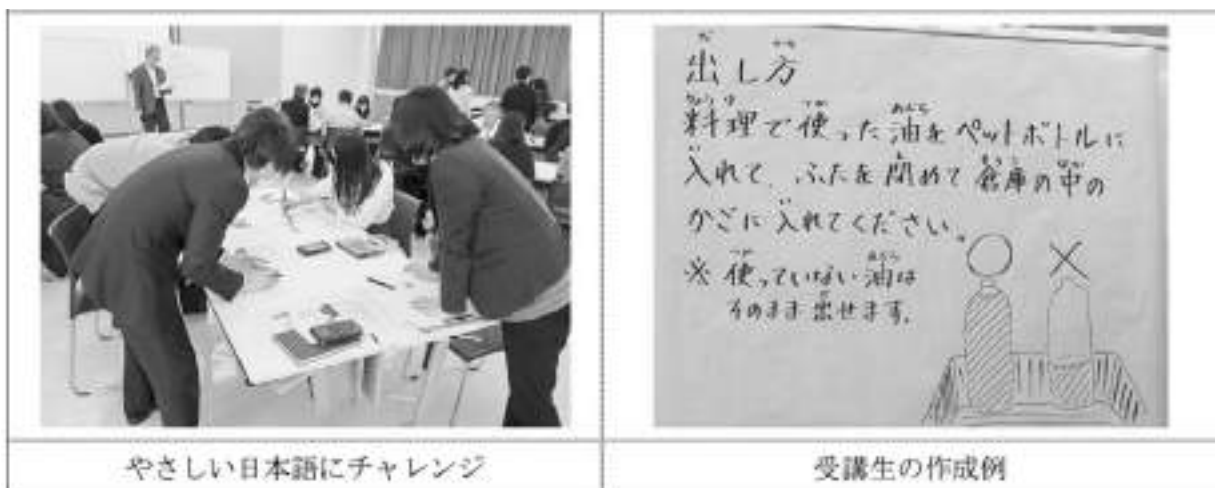 出し方
料理で使った油をペットボトルに
入れて、ふたを閉めて倉庫の中の
かごに入れてください。
※使っていない油は
そのまま出せます。
やさしい日本語にチャレンジ
受講生の作成例